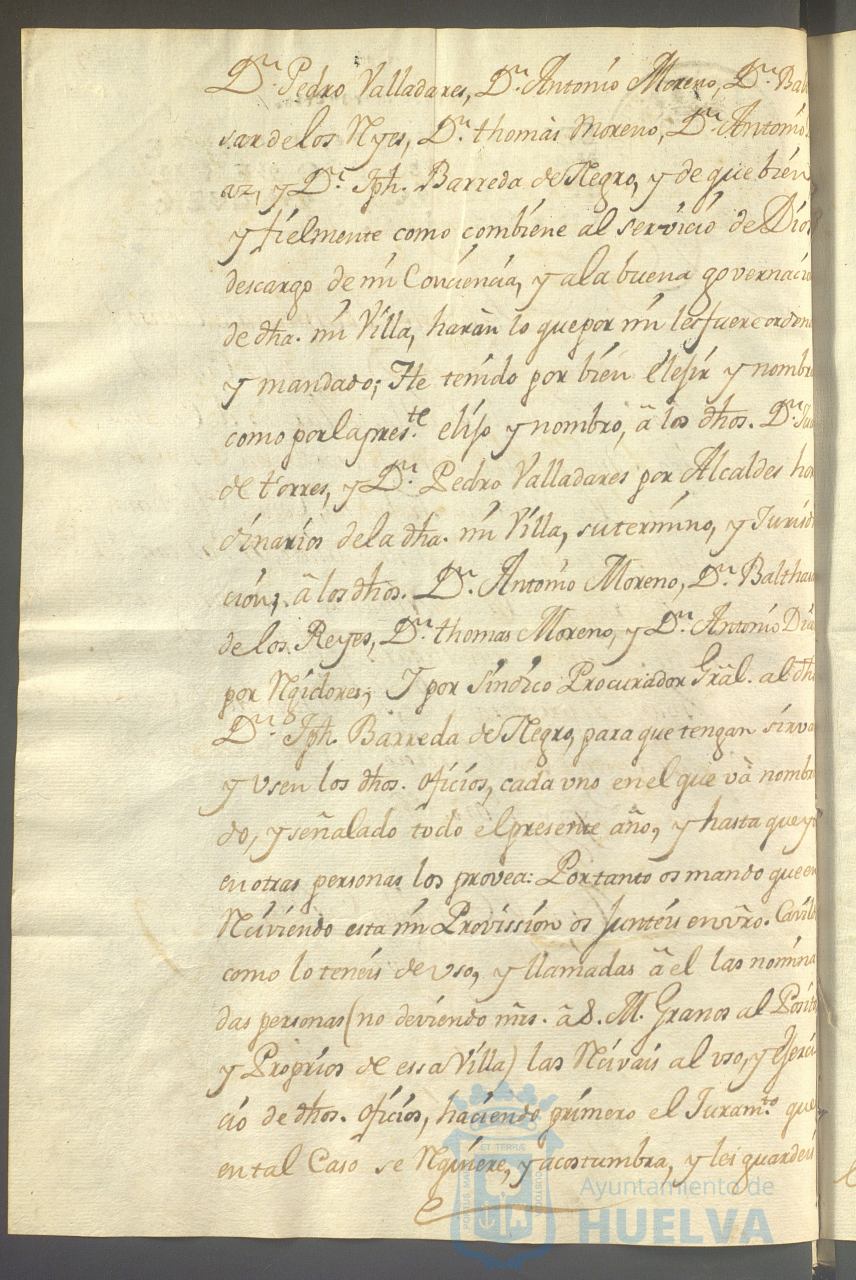 Dn. Pedro Valladares, Dn. Antonio Moreno, Dn. Bal
sar de los Reyes, Dn. thomàs Moreno, Dn. Antonio
az, y Dn. Jph. Barreda de Negro, y de que bien
y fielmente como combiene al servicio de Dios
descargo de mi Conciencia, y a la buena governacio
de dha. mi Villa, haràn lo que por mi les fuere orden
y mandado; He tenido por bien Elejir y nombr
como por la preste. elijo y nombro, â los dhos. Dn.
de torres, y Dn. Pedro Valladares por Alcaldes hor
dinarios de la dha. mi Villa, su termino, y Jurisd
ción; â los dhos. Dn. Antonio Moreno, Dn. Balthas
de los Reyes, Dn. thomas Moreno, y Dn. Antonio Dia
por Rexidores; Y por sindico Procurador Grâl. al dh
Dn. Jph. Barreda de Negro, para que tengan sirva
y Vsen los dhos. oficios, cada vno en el que và nombra
do, y señalado todo el presente año, y hasta que y
en otras personas los provea: Por tanto os mando que en
Reciviendo esta mi Provission os Junteis en vro. Cavild
como lo teneis de vso, y llamadas â el las nomina
das personas (no deviendo mrs. â S. M. Granos al Posit
y Proprios de essa Villa) las Recivais al vso, y Exerci
cio de dhos. oficios, haciendo primero el Juramto. que
en tal Caso se Requiere, y acostumbra, y les guardeis
ET TERRÆ
Ayuntamiento de
HUELVA